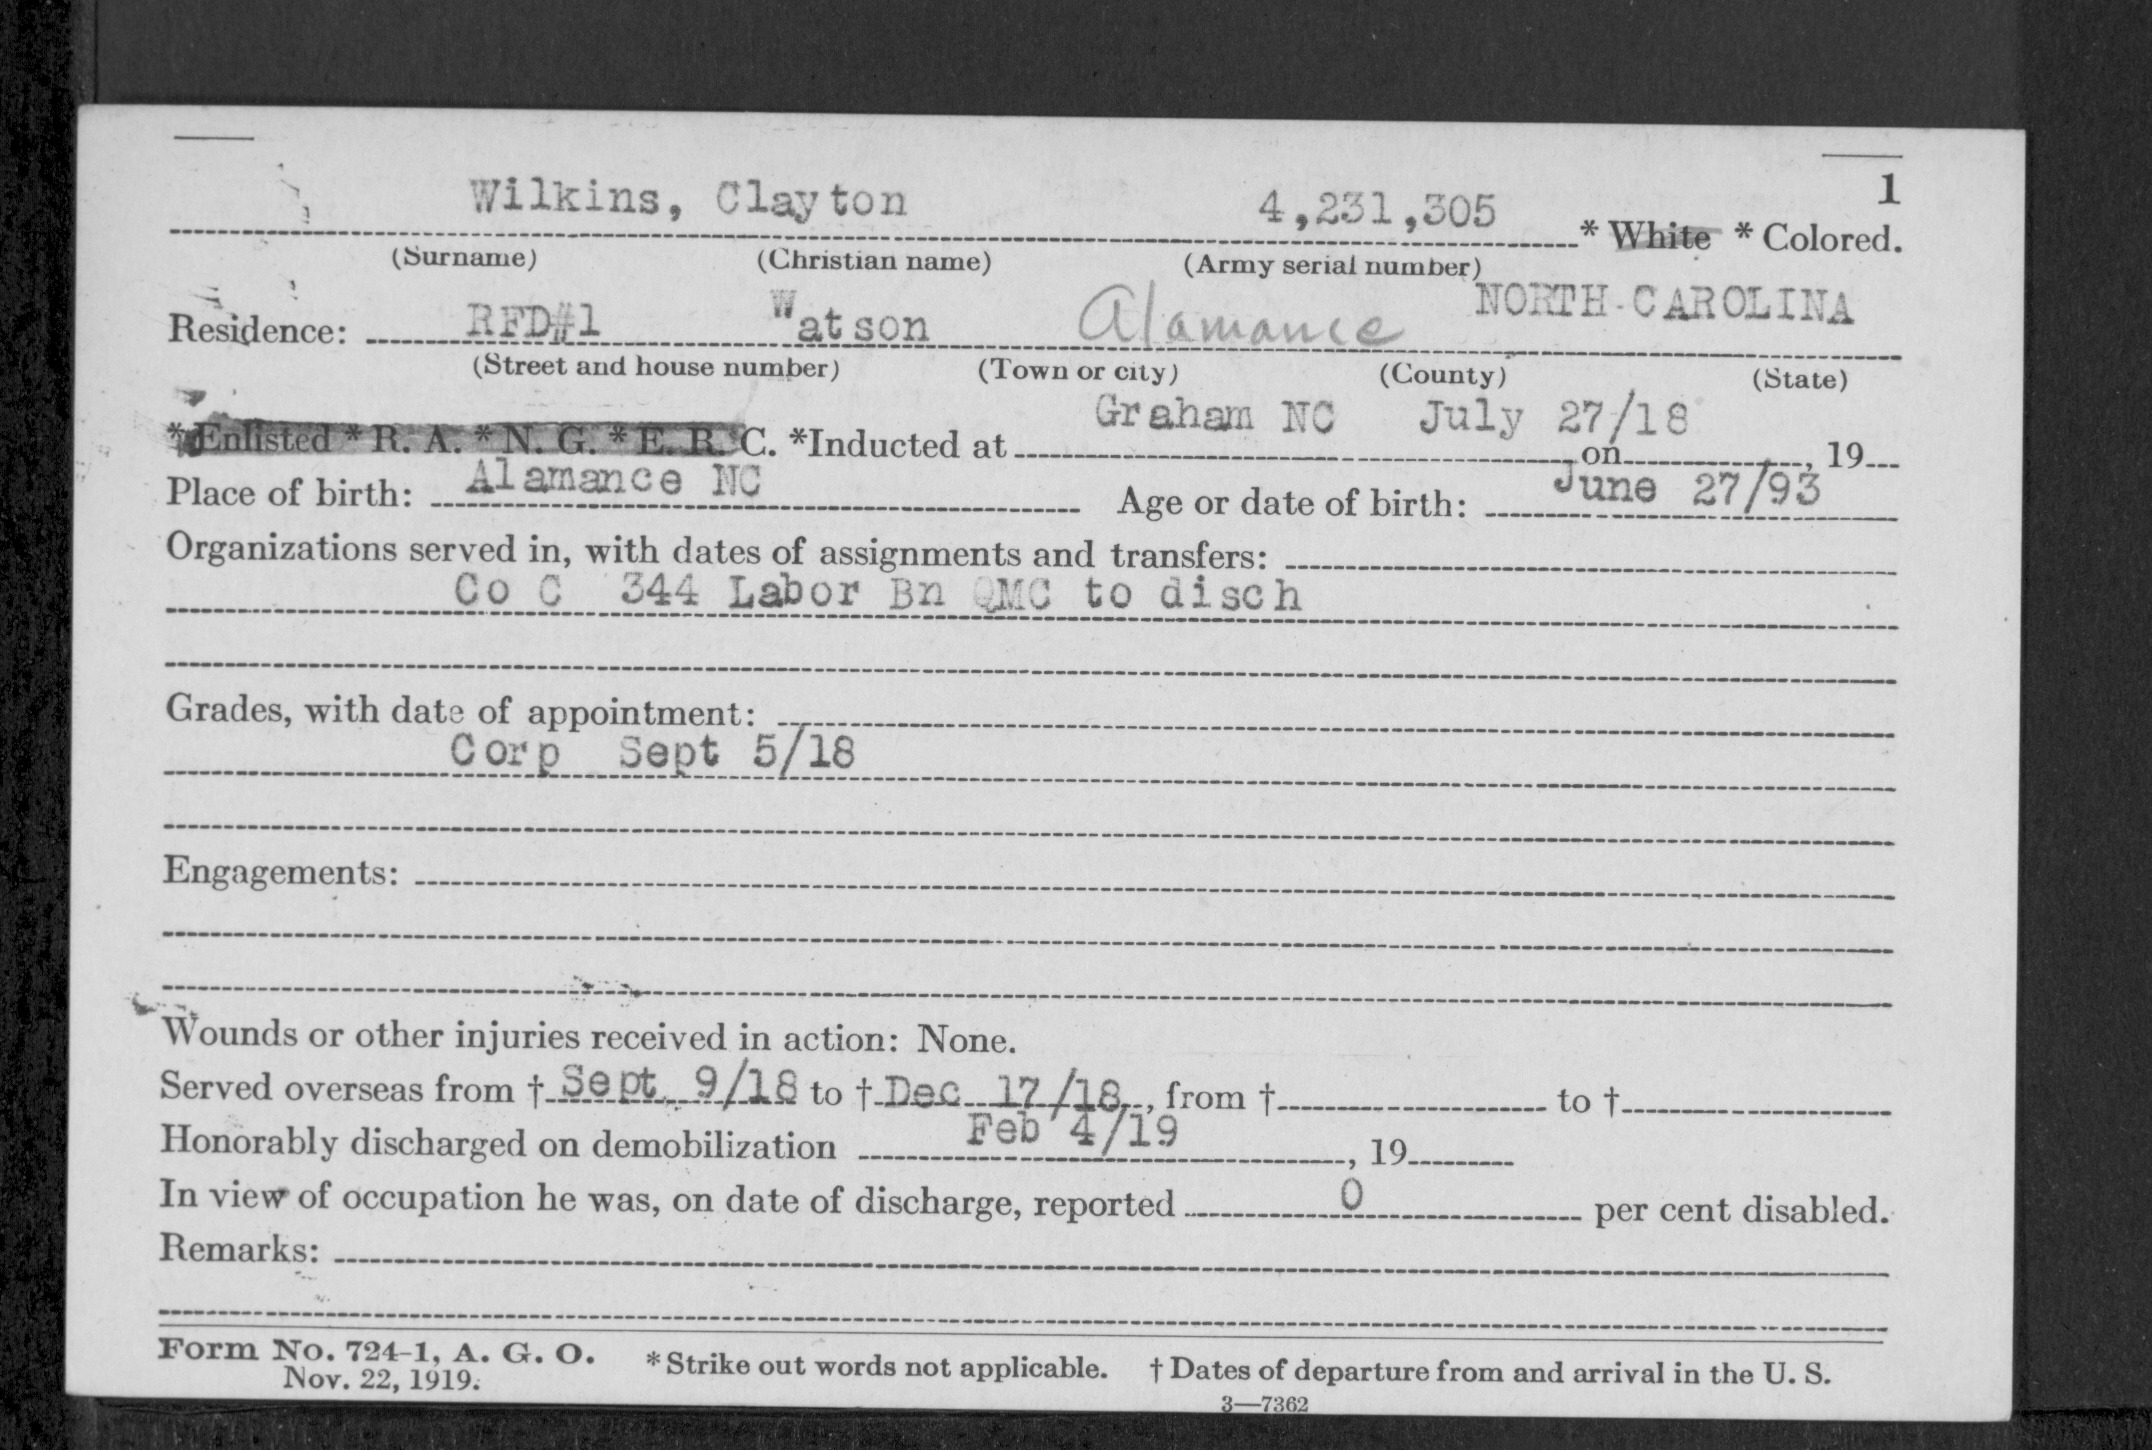 1
Wilkins, Clayton 4,231,305 * White * Colored.
(Surname) (Christian name) (Army serial number)
Residence: RFD#1 Watson Alamance NORTH CAROLINA
(Street and house number) (Town or city) (County) (State)
*Enlisted *R. A. *N. G. *E. R. C. *Inducted at Graham NC on July 27/18, 19
Place of birth: Alamance NC Age or date of birth: June 27/93
Organizations served in, with dates of assignments and transfers:
Co C 344 Labor Bn QMC to disch
Grades, with date of appointment:
Corp Sept 5/18
Engagements:
Wounds or other injuries received in action: None.
Served overseas from † Sept 9/18 to † Dec 17/18, from † to †
Honorably discharged on demobilization Feb 4/19, 19
In view of occupation he was, on date of discharge, reported 0 per cent disabled.
Remarks:
Form No. 724-1, A. G. O. *Strike out words not applicable. † Dates of departure from and arrival in the U. S.
Nov. 22, 1919.
3—7362